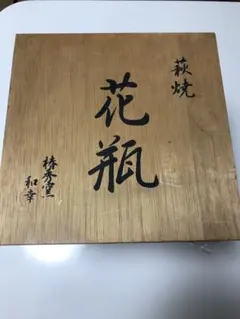 萩焼
花瓶
椿秀窯
和幸